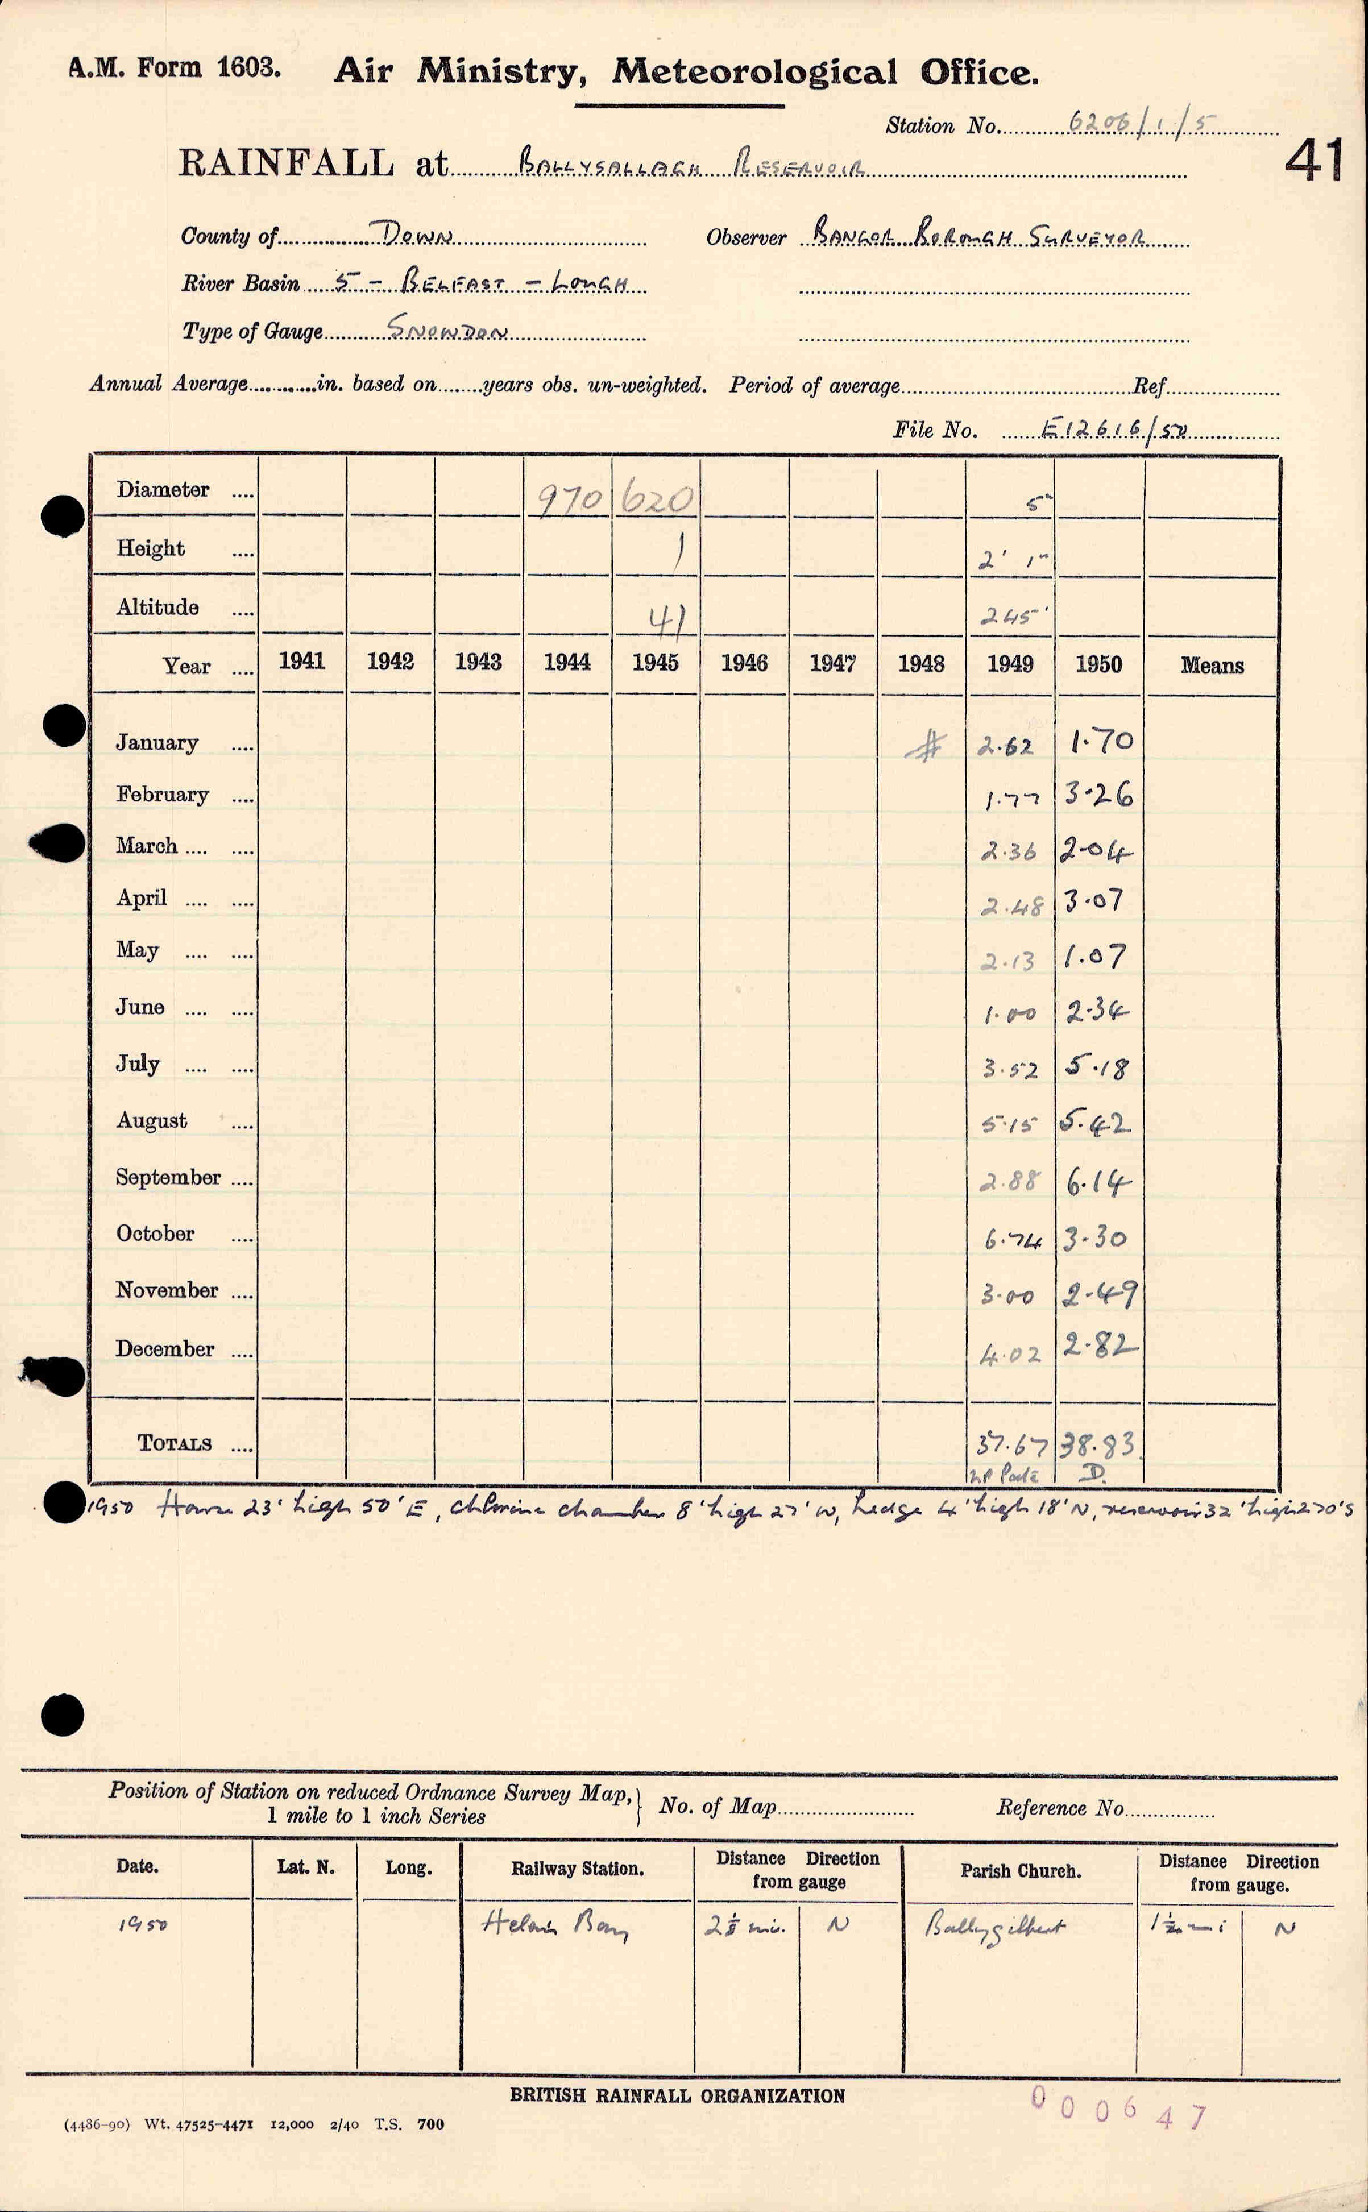 A.M. Form 1603. Air Ministry, Meteorological Office.
Station No. 6206/1/5
41
RAINFALL at BALLYSALLAGH RESERVOIR
County of DOWN Observer BANGOR BOROUGH SURVEYOR
River Basin 5 - BELFAST - LOUGH
Type of Gauge SNOWDON
Annual Average in. based on years obs. un-weighted. Period of average Ref.
File No. E12616/50
Diameter .... 970 620 5"
Height .... 1 2' 1"
Altitude .... 41 245'
Year .... 1941 1942 1943 1944 1945 1946 1947 1948 1949 1950 Means
January .... # 2.62 1.70
February .... 1.77 3.26
March .... .... 2.36 2.04
April .... .... 2.48 3.07
May .... .... 2.13 1.07
June .... .... 1.00 2.34
July .... .... 3.52 5.18
August .... 5.15 5.42
September .... 2.88 6.14
October .... 6.74 3.30
November .... 3.00 2.49
December .... 4.02 2.82
TOTALS .... 37.67 38.83
D.
1950 House 23' high 50' E, chlorine chamber 8' high 27' W, hedge 4' high 18' N, reservoir 32' high 270' S
Position of Station on reduced Ordnance Survey Map, } No. of Map Reference No.
1 mile to 1 inch Series
Date. Lat. N. Long. Railway Station. Distance Direction from gauge Parish Church. Distance Direction from gauge.
1950 Helen's Bay 2 1/8 mi. N Ballygilbert 1 1/2 mi N
BRITISH RAINFALL ORGANIZATION
000647
(4486-90) Wt. 47525-4471 12,000 2/40 T.S. 700